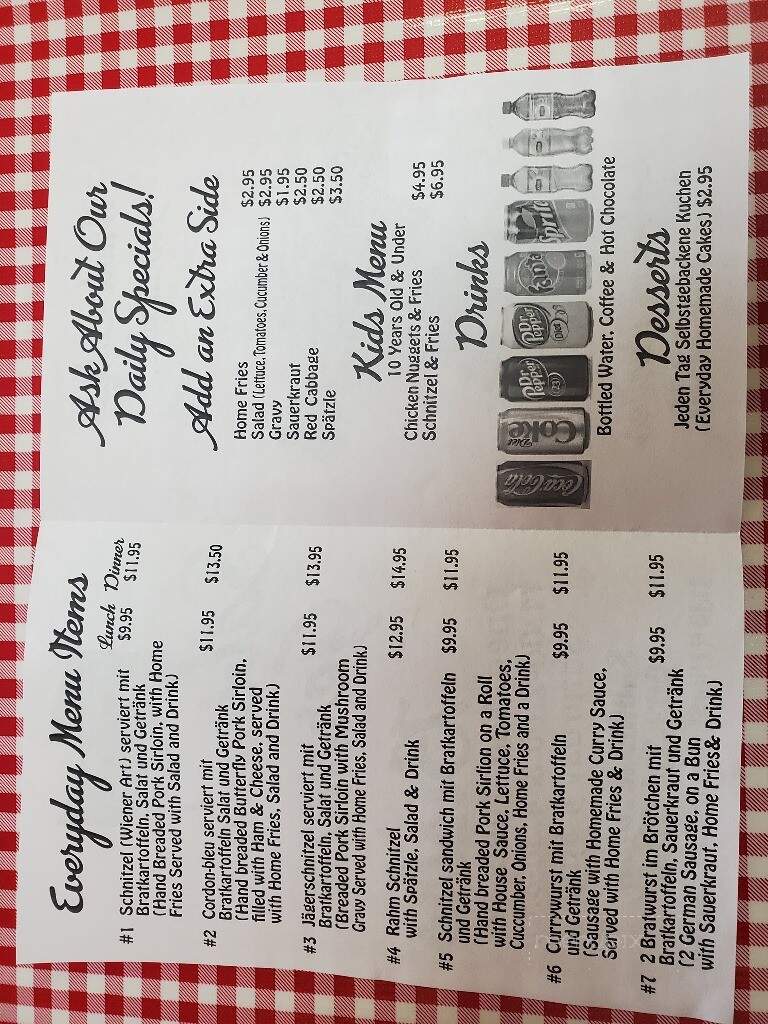 Everyday Menu Items
Lunch Dinner
#1 Schnitzel (Wiener Art) serviert mit $9.95 $11.95
Bratkartoffeln, Salat und Getränk
(Hand Breaded Pork Sirloin, with Home
Fries Served with Salad and Drink)
#2 Cordon-bleu serviert mit $11.95 $13.50
Bratkartoffeln Salat und Getränk
(Hand breaded Butterfly Pork Sirloin,
filled with Ham & Cheese, served
with Home Fries, Salad and Drink)
#3 Jägerschnitzel serviert mit $11.95 $13.95
Bratkartoffeln, Salat und Getränk
(Breaded Pork Sirloin with Mushroom
Gravy Served with Home Fries, Salad and Drink)
#4 Rahm Schnitzel $12.95 $14.95
with Spätzle, Salad & Drink
#5 Schnitzel sandwich mit Bratkartoffeln $9.95 $11.95
und Getränk
(Hand breaded Pork Sirlion on a Roll
with House Sauce, Lettuce, Tomatoes,
Cuccumber, Onions, Home Fries and a Drink)
#6 Currywurst mit Bratkartoffeln $9.95 $11.95
und Getränk
(Sausage with Homemade Curry Sauce,
Served with Home Fries & Drink)
#7 2 Bratwurst im Brötchen mit $9.95 $11.95
Bratkartoffeln, Sauerkraut und Getränk
(2 German Sausage, on a Bun
with Sauerkraut, Home Fries& Drink)
Ask About Our
Daily Specials!
Add an Extra Side
Home Fries $2.95
Salad (Lettuce, Tomatoes, Cucumber & Onions) $2.95
Gravy $1.95
Sauerkraut $2.50
Red Cabbage $2.50
Spätzle $3.50
Kids Menu
10 Years Old & Under
Chicken Nuggets & Fries $4.95
Schnitzel & Fries $6.95
Drinks
Coca-Cola
Diet Coke
Dr Pepper 23
Dr Pepper Diet
Fanta
Sprite
Bottled Water, Coffee & Hot Chocolate
Desserts
Jeden Tag Selbstgebackene Kuchen
(Everyday Homemade Cakes) $2.95